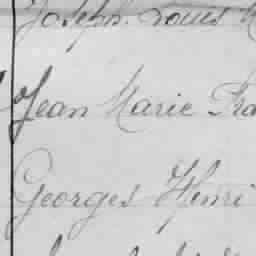 Joseph Louis
Jean Marie Fra
Georges Henri